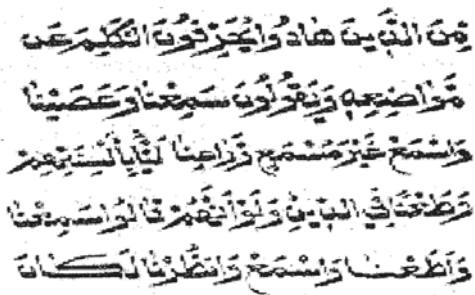 مِنَ الَّذِينَ هَادُوا يُحَرِّفُونَ الْكَلِمَ عَن
مَّوَاضِعِهِ وَيَقُولُونَ سَمِعْنَا وَعَصَيْنَا
وَاسْمَعْ غَيْرَ مُسْمَعٍ وَرَاعِنَا لَيًّا بِأَلْسِنَتِهِمْ
وَطَعْنًا فِي الدِّينِ وَلَوْ أَنَّهُمْ قَالُوا سَمِعْنَا
وَأَطَعْنَا وَاسْمَعْ وَانظُرْنَا لَكَانَ